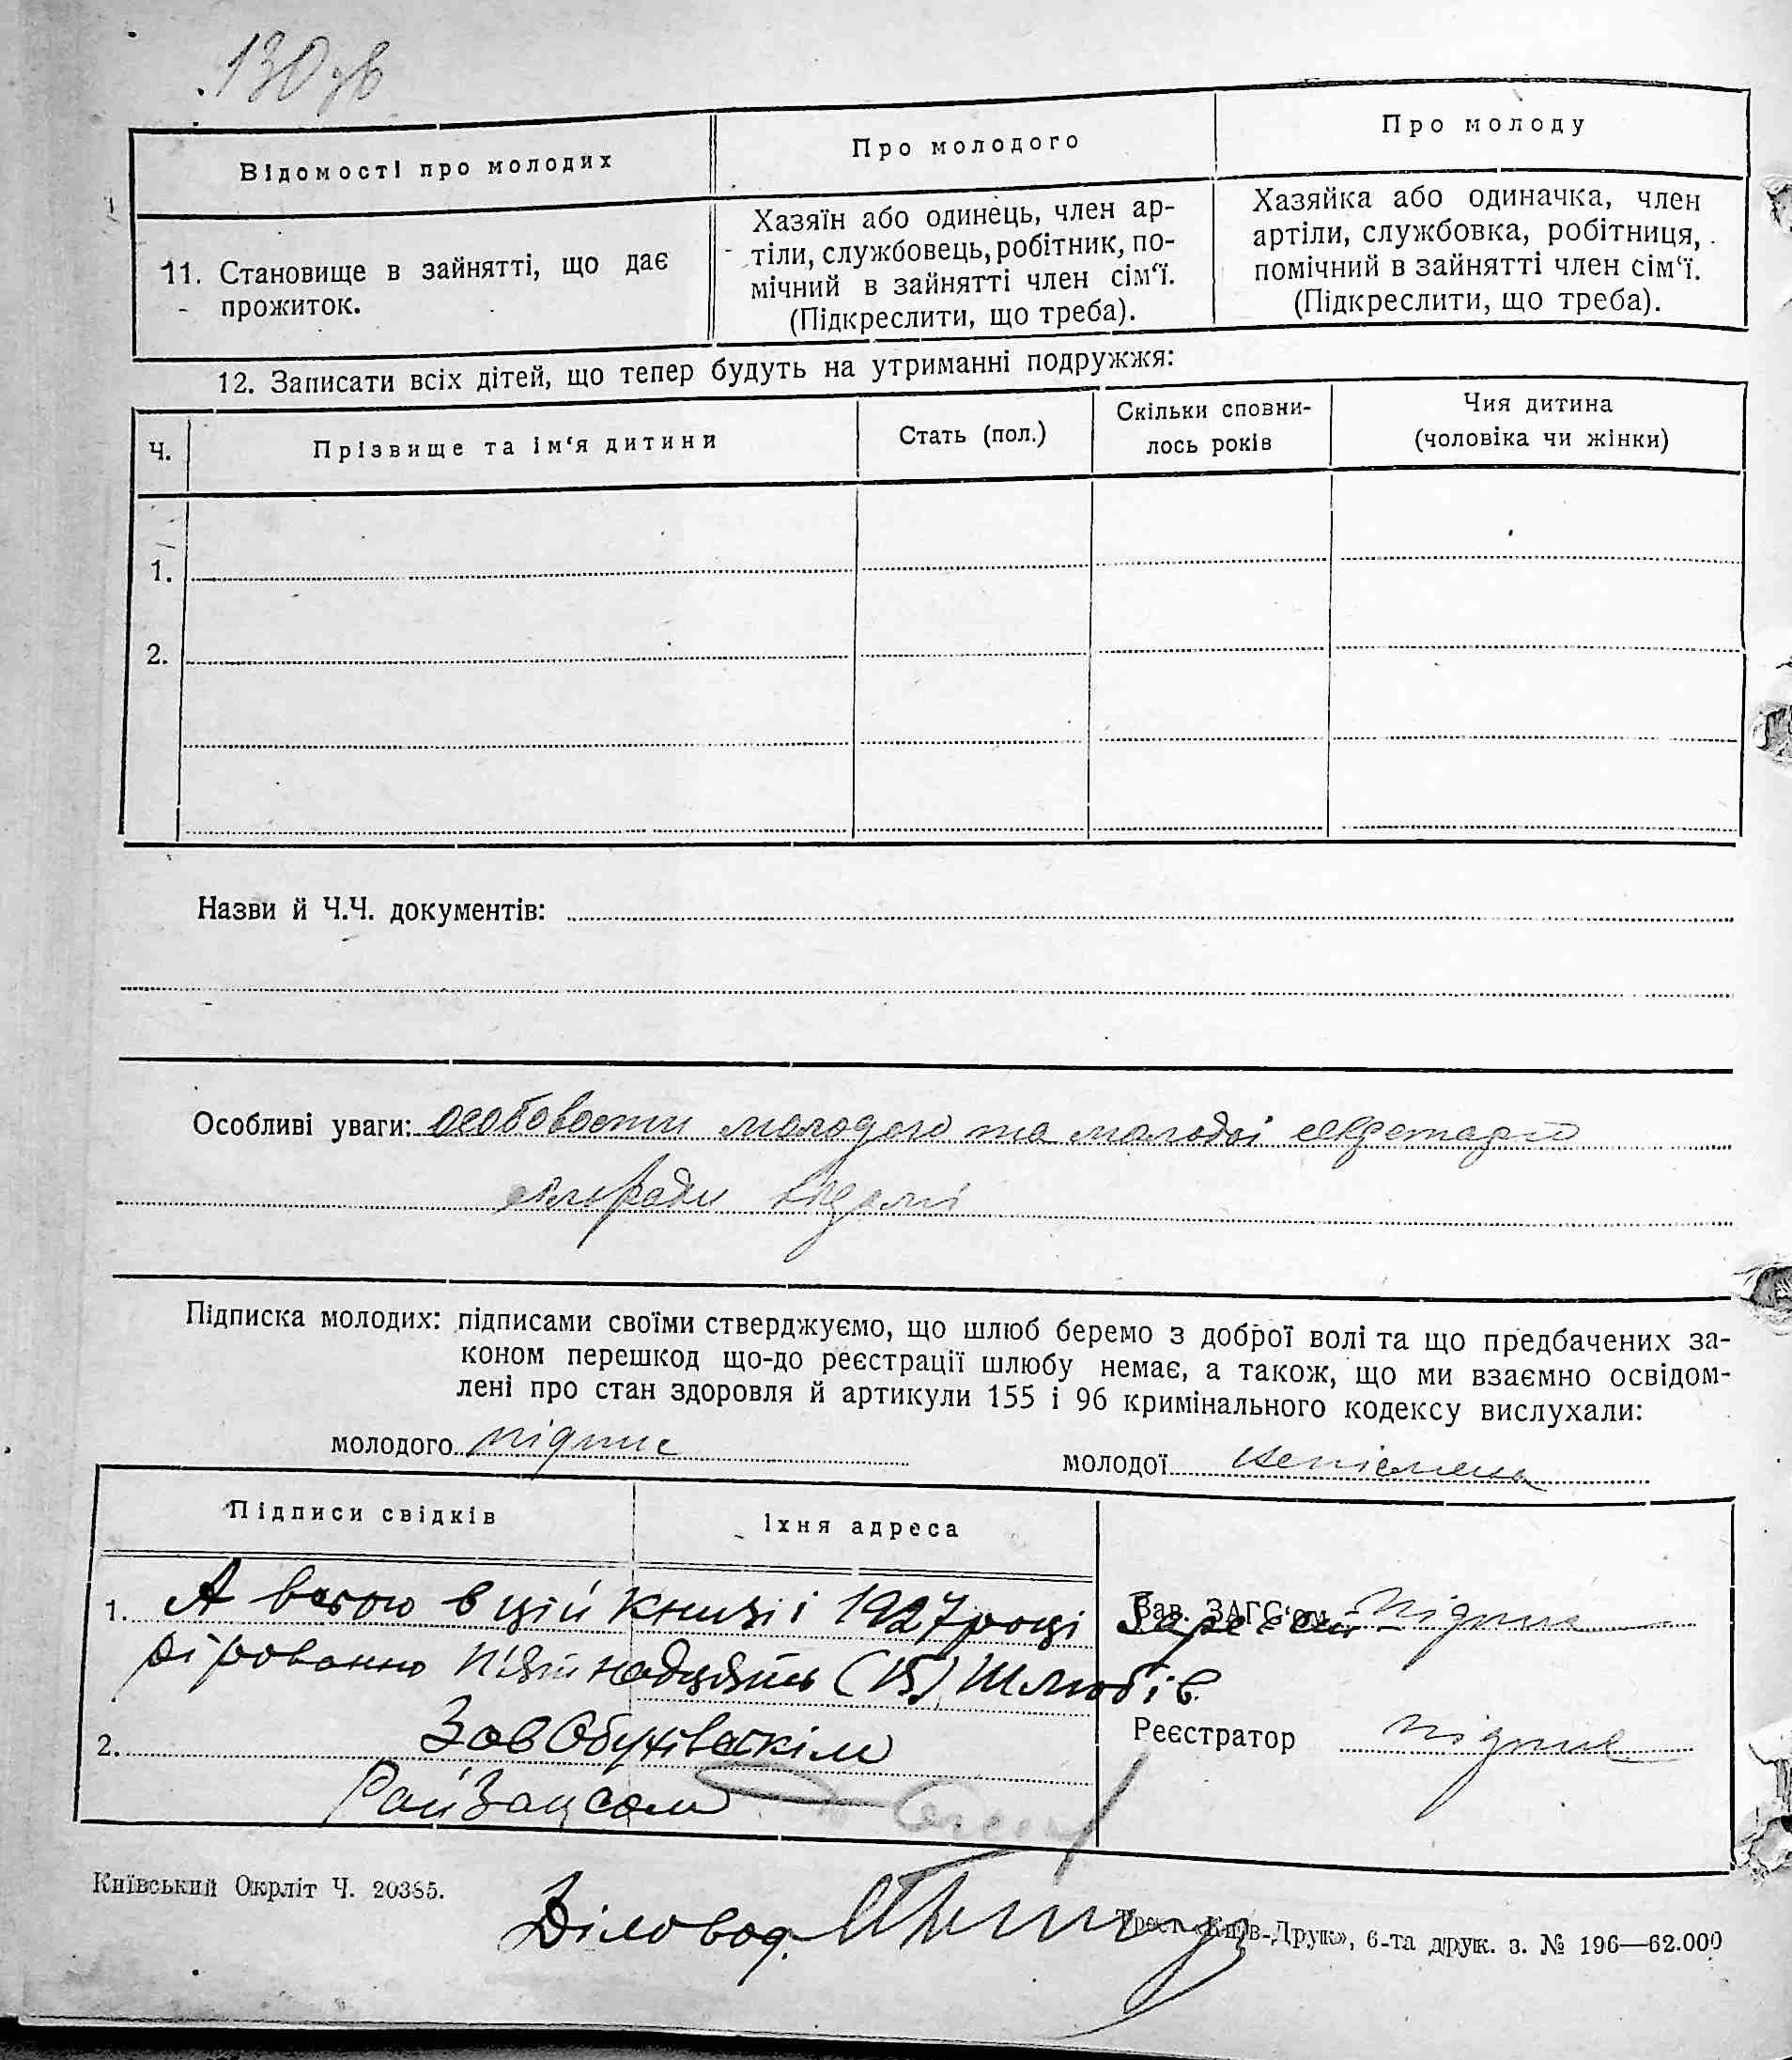 130 зв
Відомості про молодих
Про молодого
Про молоду
11. Становище в зайнятті, що дає
прожиток.
Хазяїн або одинець, член ар-
тіли, службовець, робітник, по-
мічний в зайнятті член сім‘ї.
(Підкреслити, що треба).
Хазяйка або одиначка, член
артіли, службовка, робітниця,
помічний в зайнятті член сім‘ї.
(Підкреслити, що треба).
12. Записати всіх дітей, що тепер будуть на утриманні подружжя:
Ч.
Прізвище та ім‘я дитини
Стать (пол.)
Скільки сповни-
лось років
Чия дитина
(чоловіка чи жінки)
1.
2.
Назви й Ч.Ч. документів:
Особливі уваги: особовости молодого та молодої секретарю
сільради відомі
Підписка молодих: підписами своїми стверджуємо, що шлюб беремо з доброї волі та що предбачених за-
коном перешкод що-до реєстрації шлюбу немає, а також, що ми взаємно освідом-
лені про стан здоровля й артикули 155 і 96 кримінального кодексу вислухали:
молодого підпис
молодої неписмена
Підписи свідків
Їхня адреса
1. А всього в цій книзі і 1927 році Зареєст-
рировано п'ятнадцять (15) шлюбів
2. Зав Обухівським
РайЗагсом
Зав. ЗАГС‘ом підпис
Реєстратор підпис
Київський Окрліт Ч. 20385.
Діловод.
Трест «Київ-Друк», 6-та друк. з. № 196—62.000